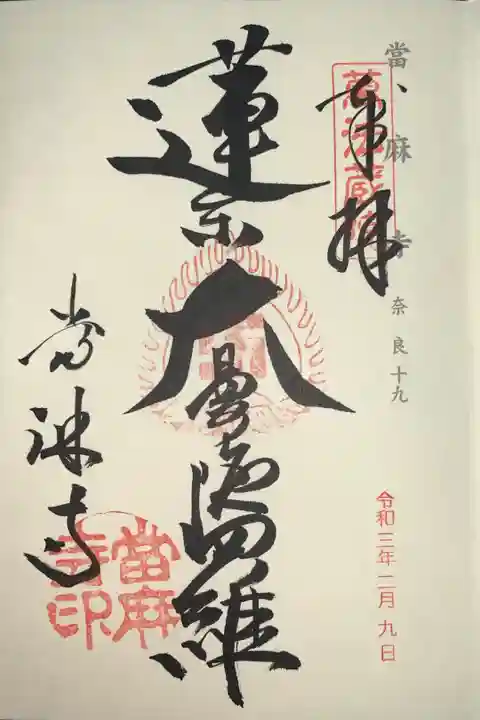 當麻寺 奈良十九
奉拝
萬法蔵院
令和三年二月九日
蓮糸大曼陀羅
當麻寺
當麻寺印